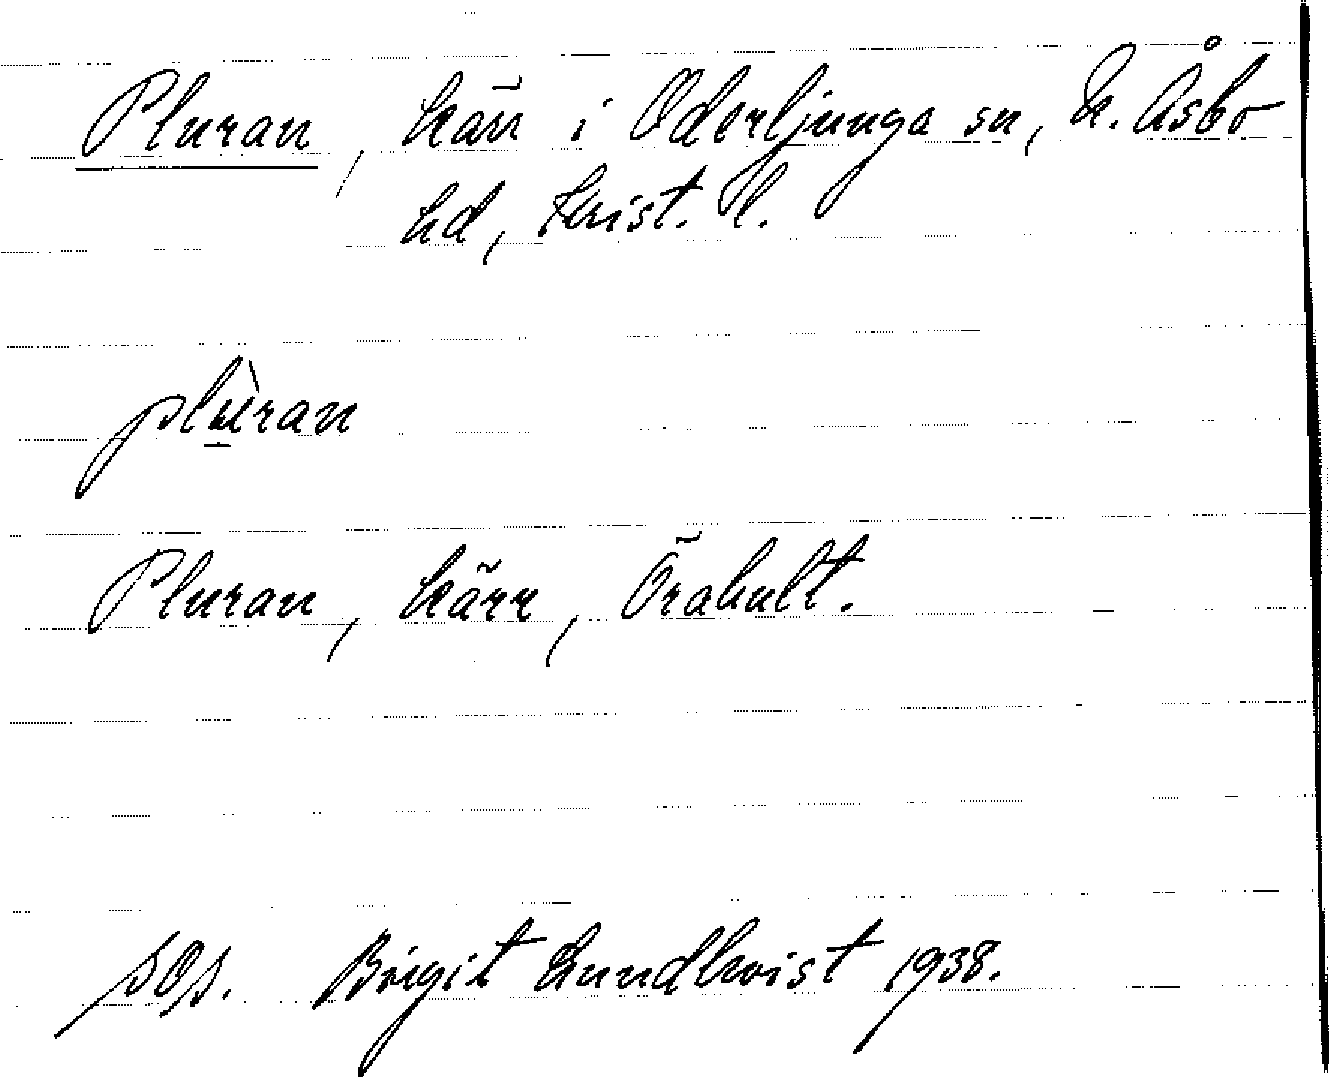 Pluran, kärr i Oderljunga sn, N. Åsbo
hd, Krist. l.
plùran
Pluran, kärr, Örahult.
pop. Birgit Lundkvist 1938.